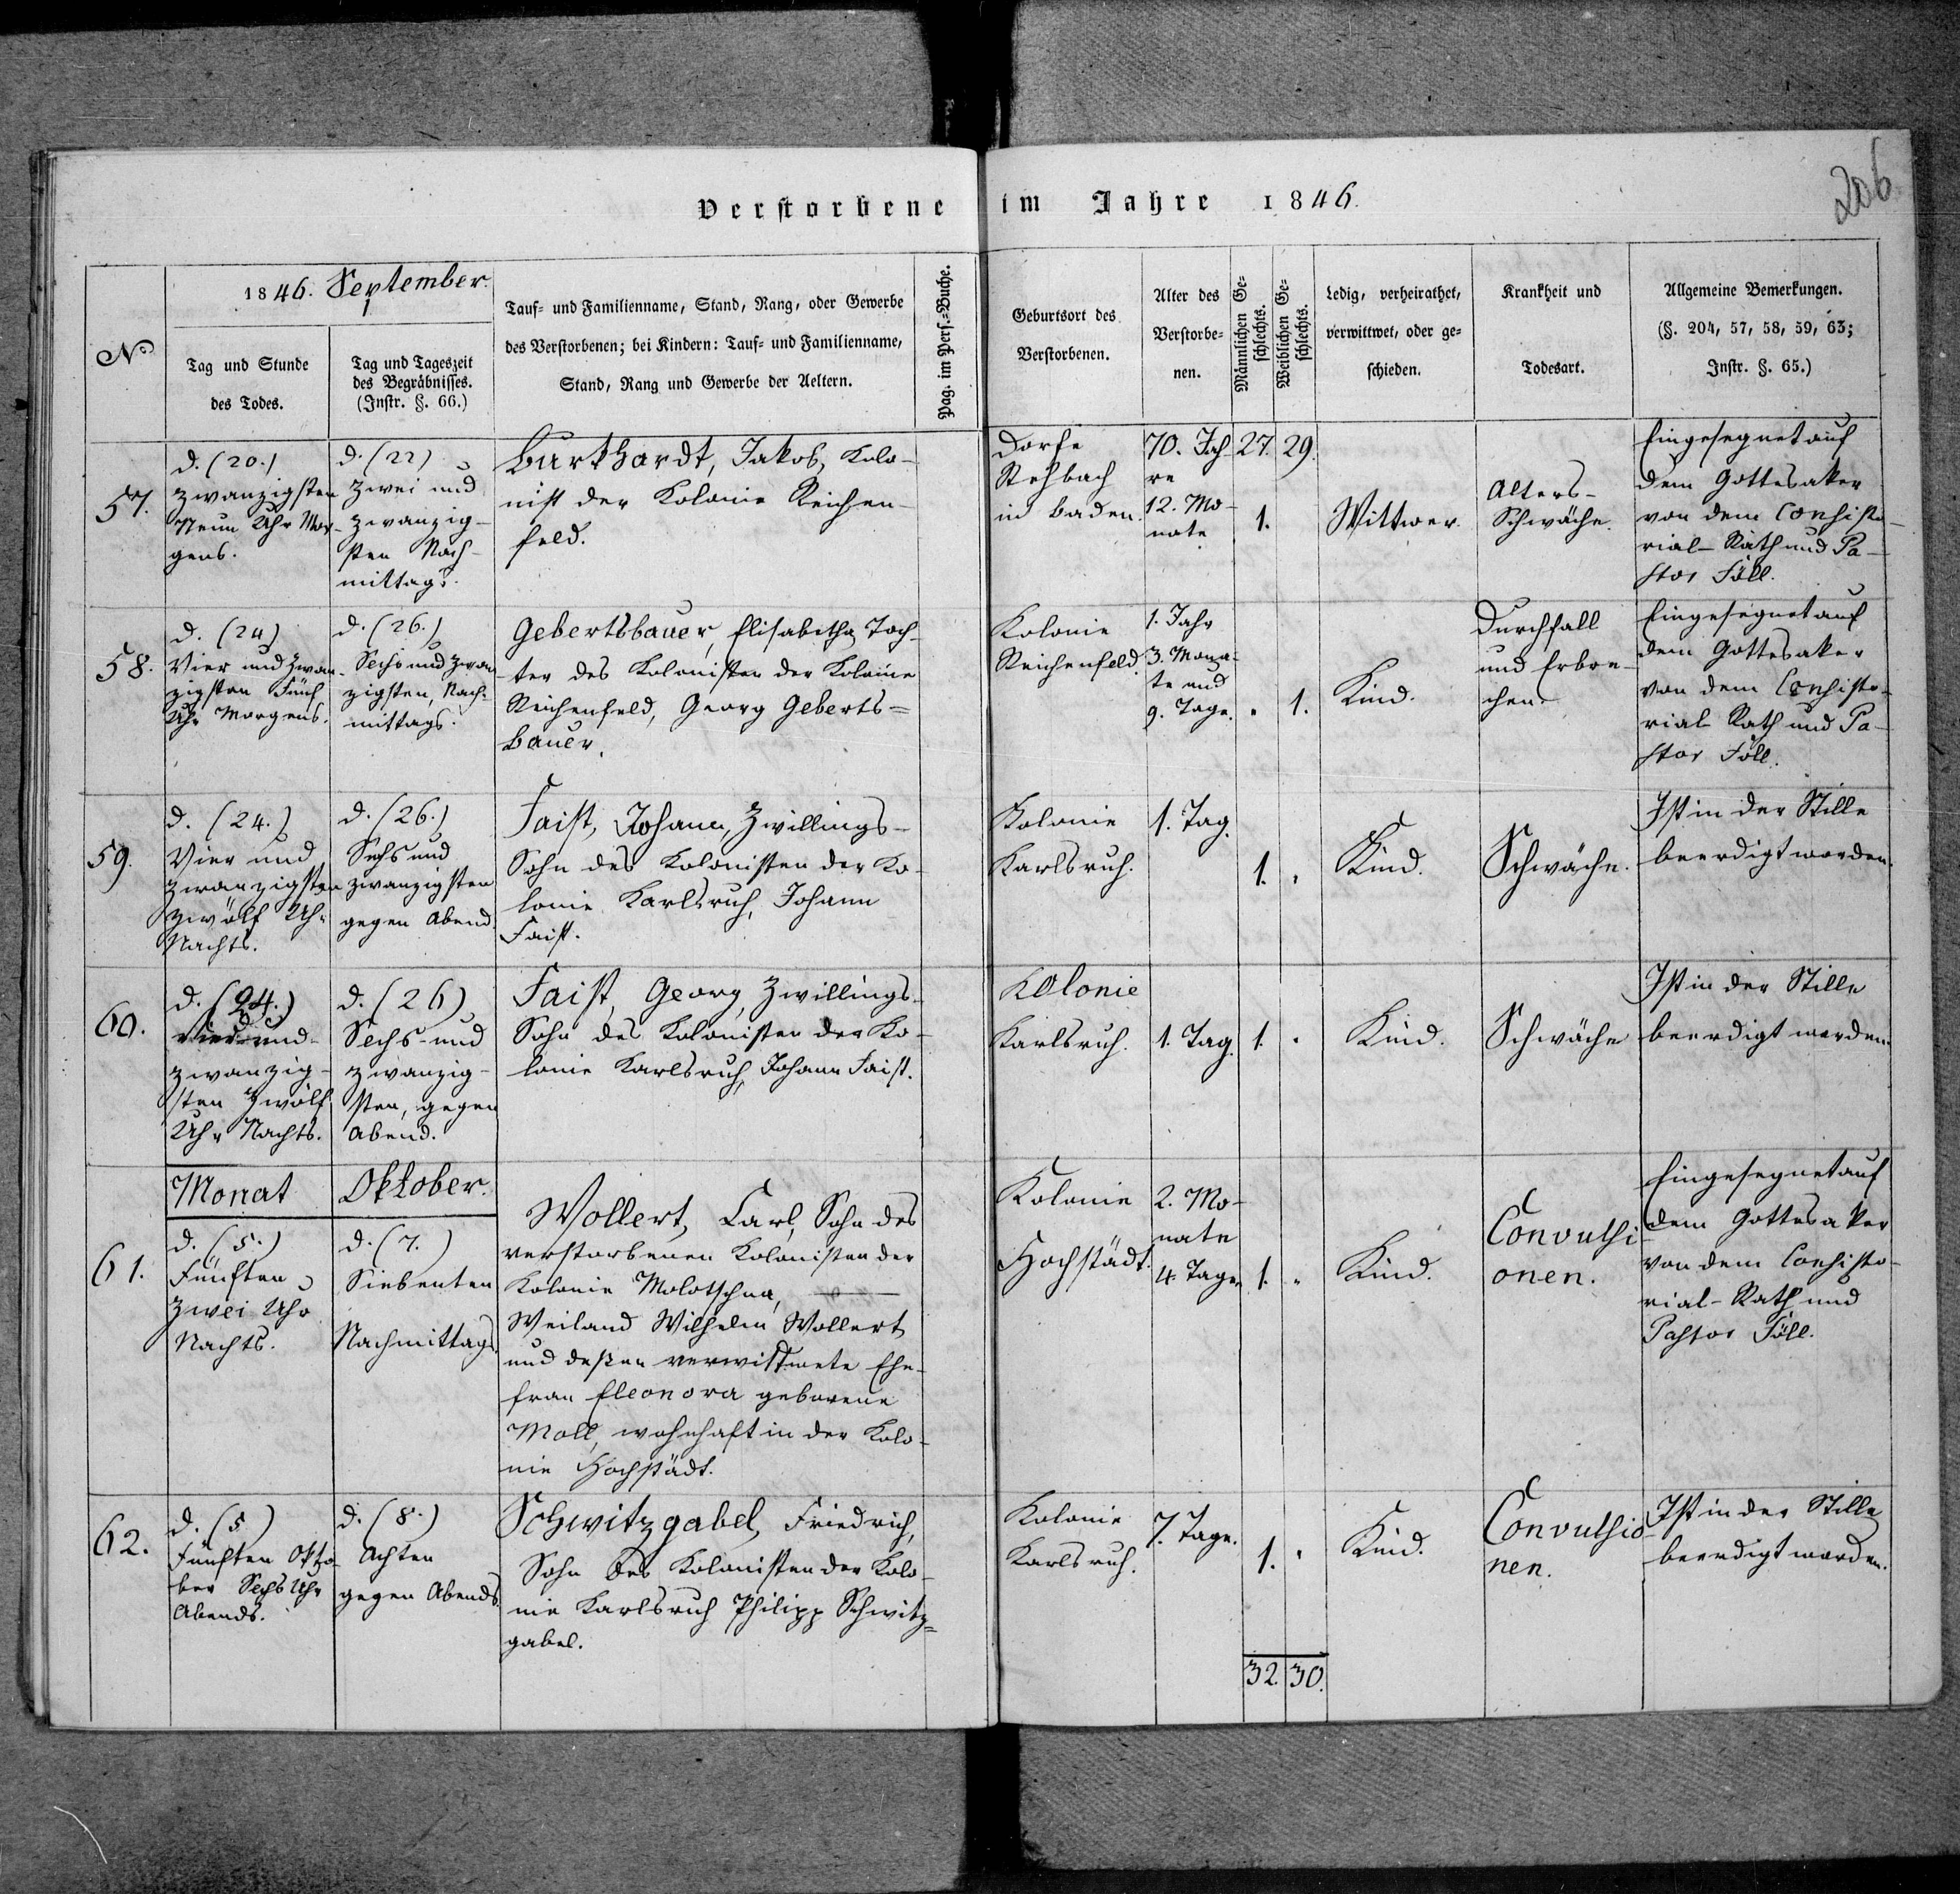 Verstorbene im Jahre 1846.
206
No
1846. September.
Tag und Stunde
des Todes.
Tag und Tageszeit
des Begräbnisses.
(Instr. §. 66.)
Tauf- und Familienname, Stand, Rang, oder Gewerbe
des Verstorbenen; bei Kindern: Tauf- und Familienname,
Stand, Rang und Gewerbe der Aeltern.
Pag. im Pers.-Buche.
Geburtsort des
Verstorbenen.
Alter des
Verstorbe-
nen.
Männlichen Ge-
schlechts.
Weiblichen Ge-
schlechts.
Ledig, verheirathet,
verwittwet, oder ge-
schieden.
Krankheit und
Todesart.
Allgemeine Bemerkungen.
(§. 204, 57, 58, 59, 63;
Instr. §. 65.)
57.
d. (20.)
zwanzigsten
Neun Uhr Mor-
gens.
d. (22)
zwei und
zwanzig-
sten Nach-
mittags.
Burkhardt, Jakob, Kolo-
nist der Kolonie Reichen-
feld.
Dorfe
Rehbach
in Baden.
70. Jah
re
12. Mo-
nate
27. 29.
1.
Wittwer.
Alters-
Schwäche.
Eingesegnet auf
dem Gottesaker
von dem Consisto-
rial-Rath und Pa-
stor Föll.
58.
d. (24)
Vier und zwan-
zigsten Fünf
Uhr Morgens.
d. (26.)
Sechs und zwan
zigsten, Nach-
mittags.
Gebertsbauer, Elisabetha, Toch-
ter des Kolonisten der Kolonie
Reichenfeld, Georg Geberts-
bauer.
Kolonie
Reichenfeld.
1. Jahr
3. Mona-
te und
9. Tage.
1.
Kind.
Durchfall
und Erbre-
chen.
Eingesegnet auf
dem Gottesaker
von dem Consisto-
rial Rath und Pa-
stor Föll.
59.
d. (24.)
Vier und
zwanzigsten
zwölf Uhr
Nachts.
d. (26.)
Sechs und
zwanzigsten
gegen Abend.
Faist, Johann, Zwillings-
Sohn des Kolonisten der Ko-
lonie Karlsruh, Johann
Faist.
Kolonie
Karlsruh.
1. Tag.
1.
Kind.
Schwäche.
Ist in der Stille
beerdigt worden.
60.
d. (24.)
Vier und
zwanzig-
sten Zwölf
Uhr Nachts.
d. (26)
Sechs- und
zwanzig-
sten, gegen
Abend.
Faist, Georg, Zwillings-
Sohn des Kolonisten der Ko-
lonie Karlsruh, Johann Faist.
Kolonie
Karlsruh.
1. Tag.
1.
Kind.
Schwäche
Ist in der Stille
beerdigt worden.
Monat Oktober.
61.
d. (5.)
Fünften
zwei Uhr
Nachts.
d. (7.)
Siebenten
Nachmittags.
Wollert, Carl, Sohn des
verstorbenen Kolonisten der
Kolonie Molotschna,
Weiland Wilhelm Wollert
und deßen verwittwete Ehe-
frau Eleonora geborene
Moll, wohnhaft in der Kolo-
nie Hochstädt.
Kolonie
Hochstädt.
2. Mo-
nate
4. Tage.
1.
Kind.
Convulsi
onen.
Eingesegnet auf
dem Gottesaker
von dem Consisto-
rial-Rath und
Pastor Föll.
62.
d. (5)
Fünften Okto
ber Sechs Uhr
Abends.
d. (8.)
Achten
gegen Abends.
Schwitzgabel, Friedrich,
Sohn des Kolonisten der Kolo-
nie Karlsruh Philipp Schwitz-
gabel.
Kolonie
Karlsruh.
7. Tage.
1.
Kind.
Convulsio
nen.
Ist in der Stille
beerdigt worden.
32. 30.